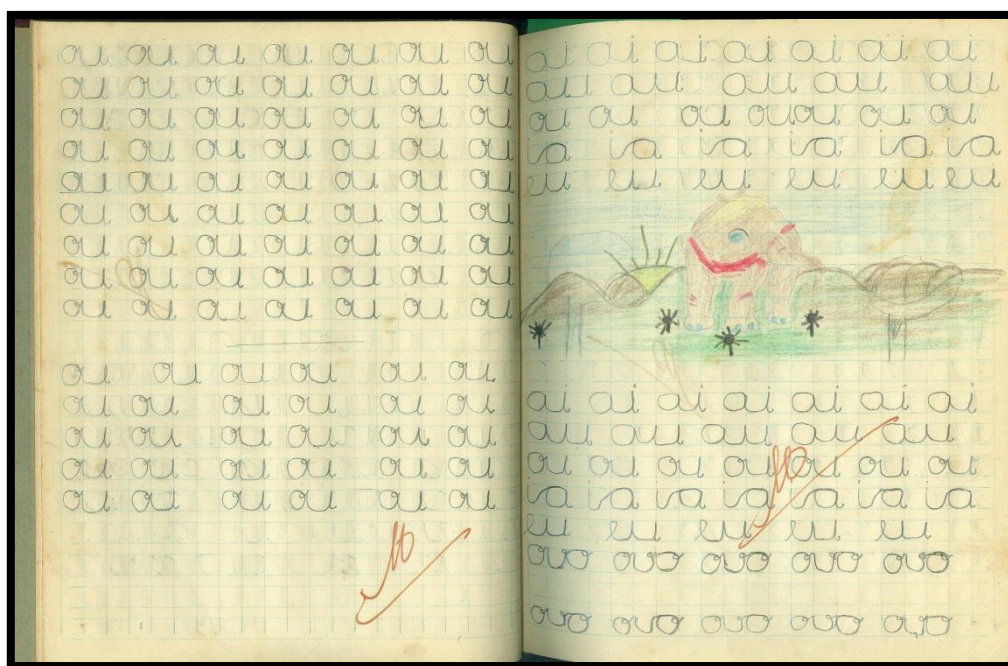 ou ou ou ou ou ou ou
ou ou ou ou ou ou ou
ou ou ou ou ou ou ou
ou ou ou ou ou ou ou
ou ou ou ou ou ou ou
ou ou ou ou ou ou ou
ou ou ou ou ou ou ou
ou ou ou ou ou ou ou
ou ou ou ou ou ou ou
ou ou ou ou ou ou
ou ou ou ou ou ou
ou ou ou ou ou ou
ou ou ou ou ou ou
ou ou ou ou ou ou
ai ai ai ai ai ai ai
au au au au au
ou ou ou ou ou ou ou
ia ia ia ia ia ia
eu eu eu eu eu eu
ai ai ai ai ai ai ai
au au au au au
ou ou ou ou ou ou ou
ia ia ia ia ia ia ia
eu eu eu eu eu
ovo ovo ovo ovo ovo
ovo ovo ovo ovo ovo